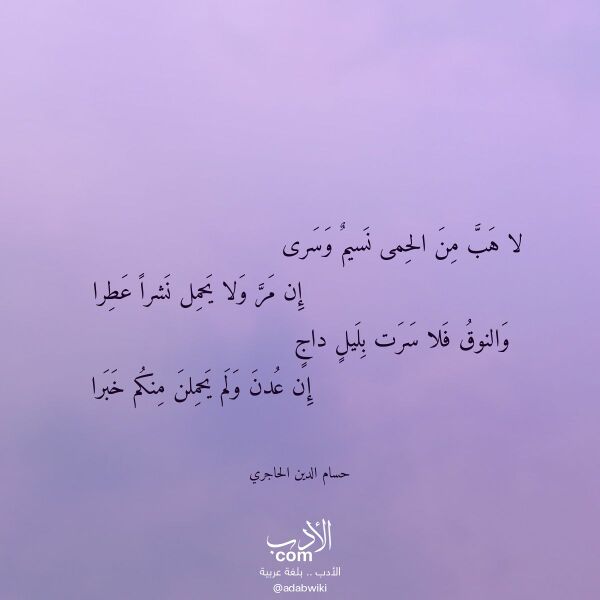 لا هَبَّ مِنَ الحِمى نَسيمٌ وَسَرى
إِن مَرَّ وَلا يَحمِل نَشراً عَطِرا
وَالنوقُ فَلا سَرَت بِلَيلٍ داجٍ
إِن عُدنَ وَلَم يَحمِلنَ مِنكُم خَبَرا
حسام الدين الحاجري
الأدب
.com
الأدب .. بلغة عربية
@adabwiki